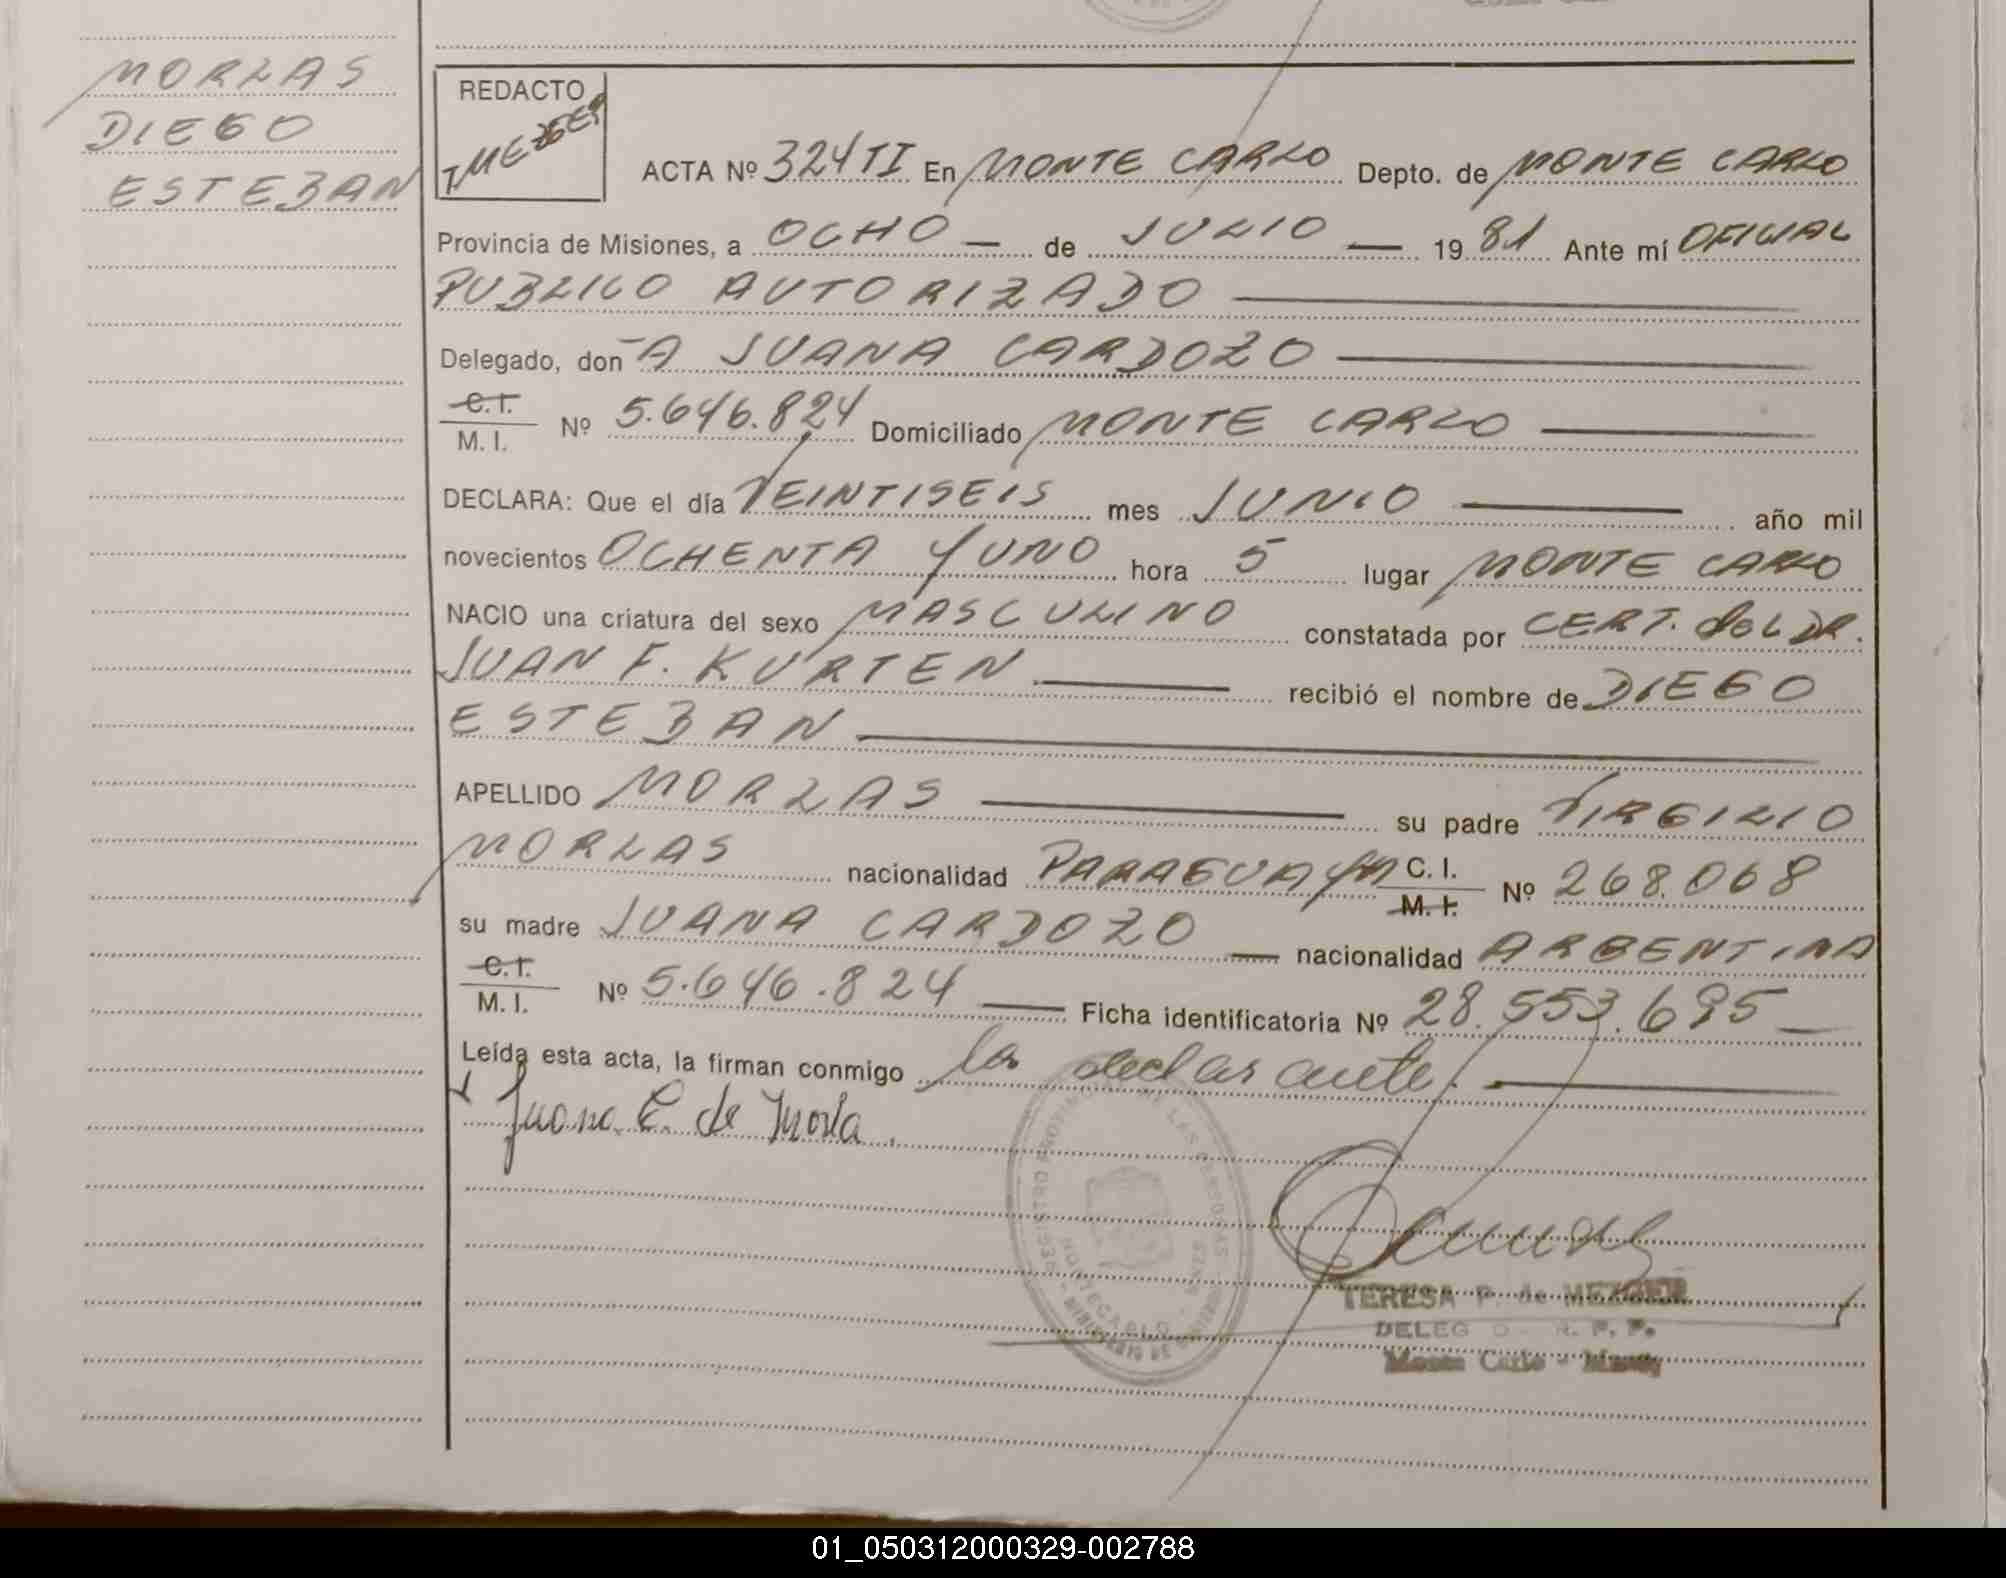 MORLAS
DIEGO
ESTEBAN
REDACTO
T.MEZGER
ACTA Nº 324 TI En MONTE CARLO Depto. de MONTE CARLO
Provincia de Misiones, a OCHO — de JULIO — 1981 Ante mí OFICIAL
PUBLICO AUTORIZADO
Delegado, don A JUANA CARDOZO
C.I.
M. I. Nº 5.646.824 Domiciliado MONTE CARLO
DECLARA: Que el día VEINTISEIS mes JUNIO año mil
novecientos OCHENTA Y UNO hora 5 lugar MONTE CARLO
NACIO una criatura del sexo MASCULINO constatada por CERT. del DR.
JUAN F. KURTEN recibió el nombre de DIEGO
ESTEBAN
APELLIDO MORLAS su padre VIRGILIO
MORLAS nacionalidad PARAGUAYA C. I. Nº 268.068
M. I.
su madre JUANA CARDOZO — nacionalidad ARGENTINA
C.I.
M. I. Nº 5.646.824 — Ficha identificatoria Nº 28.553.695
Leída esta acta, la firman conmigo la declarante.
Juana C. de Morla
REGISTRO PROVINCIAL DE LAS PERSONAS
MONTECARLO
MINISTERIO DE GOBIERNO
TERESA P. de MEZGER
DELEG
Monte Carlo - Mnes
01_050312000329-002788